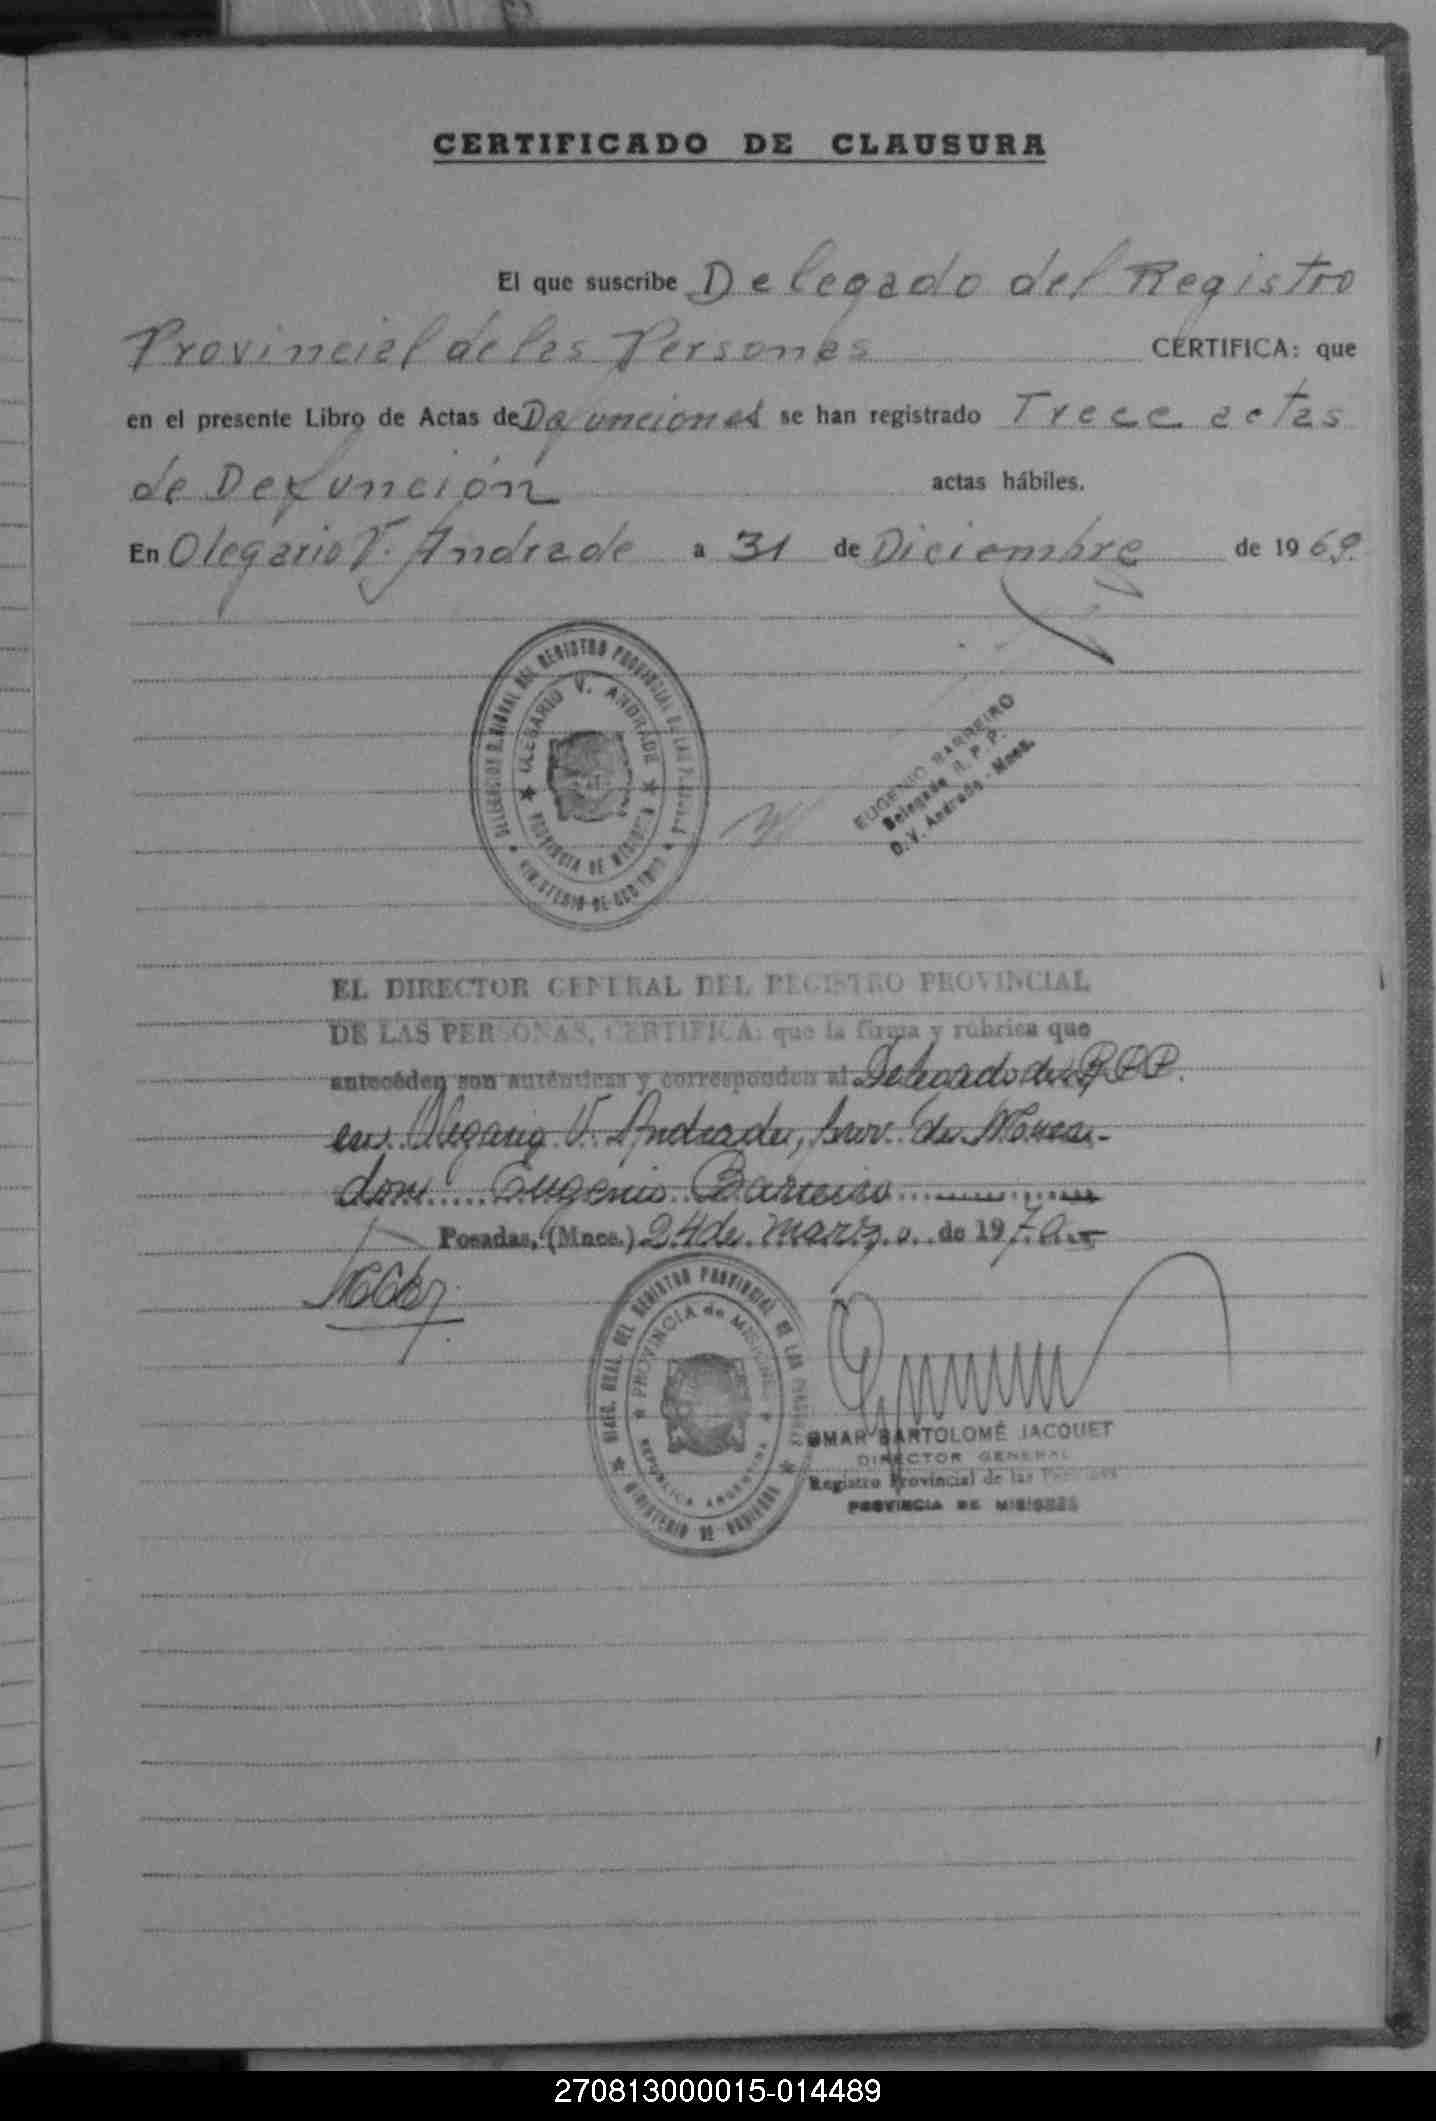 CERTIFICADO DE CLAUSURA
El que suscribe Delegado del Registro
Provincial de las Personas CERTIFICA: que
en el presente Libro de Actas de Defunciones se han registrado Trece actas
de Defunción actas hábiles.
En Olegario V. Andrade a 31 de Diciembre de 1969.
DELEGACION REGIONAL DEL REGISTRO PROVINCIAL DE LAS PERSONAS
OLEGARIO V. ANDRADE
PROVINCIA DE MISIONES
MINISTERIO DE GOBIERNO
EUGENIO BARREIRO
Delegado R. P. P.
O. V. Andrade - Mnes.
EL DIRECTOR GENERAL DEL REGISTRO PROVINCIAL
DE LAS PERSONAS, CERTIFICA: que la firma y rúbrica que
anteceden son auténticas y corresponden al Delegado del R.P.P.
en Olegario V. Andrade, Prov. de Mnes.-
don Eugenio Barreiro
Posadas, (Mnes.) 24 de marzo de 1970.-
DIREC. GRAL. DEL REGISTRO PROVINCIAL DE LAS PERSONAS
PROVINCIA de MISIONES
REPUBLICA ARGENTINA
MINISTERIO DE GOBIERNO
OMAR BARTOLOMÉ JACQUET
DIRECTOR GENERAL
Registro Provincial de las Personas
PROVINCIA DE MISIONES
270813000015-014489